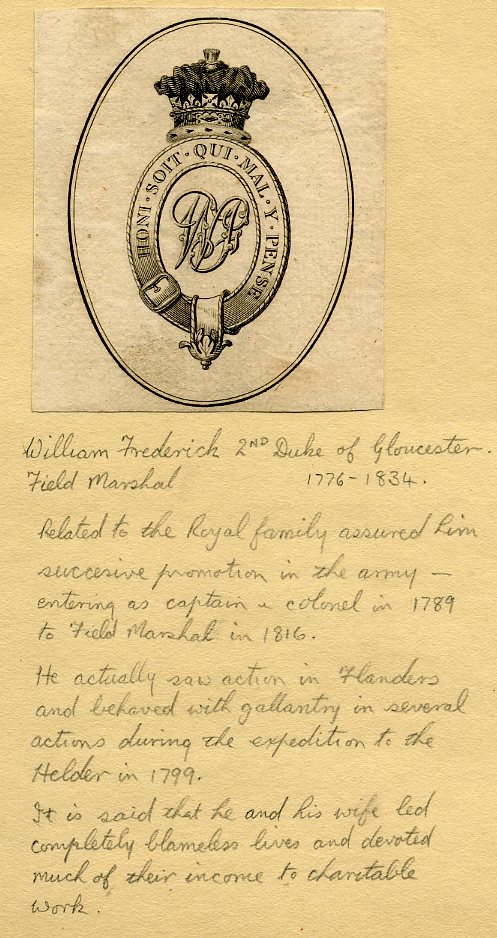 HONI · SOIT · QUI · MAL · Y · PENSE
WF
William Frederick 2ND Duke of Gloucester.
Field Marshal 1776-1834.
Related to the Royal family assured him
succesive promotion in the army —
entering as captain & colonel in 1789
to Field Marshal in 1816.
He actually saw action in Flanders
and behaved with gallantry in several
actions during the expedition to the
Helder in 1799.
It is said that he and his wife led
completely blameless lives and devoted
much of their income to charitable
work.